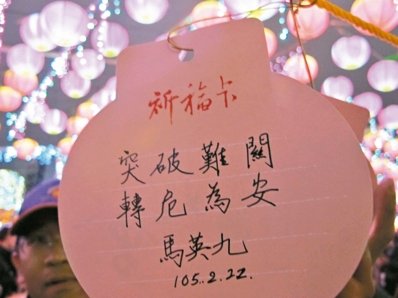 祈福卡
突破難關
轉危為安
馬英九
105.2.22.